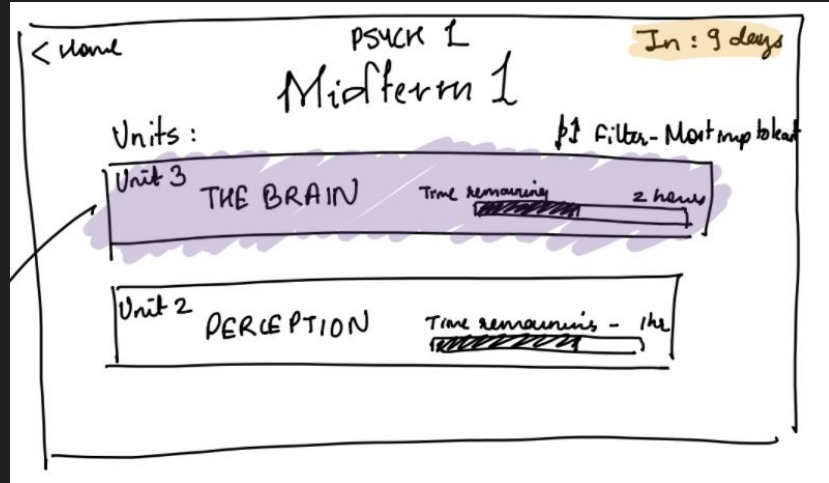 < Home
PSYCH 1
In : 9 days
Midterm 1
Units :
Filter - Most imp to least
Unit 3
THE BRAIN
Time remaining
2 hours
Unit 2
PERCEPTION
Time remaining - 1hr